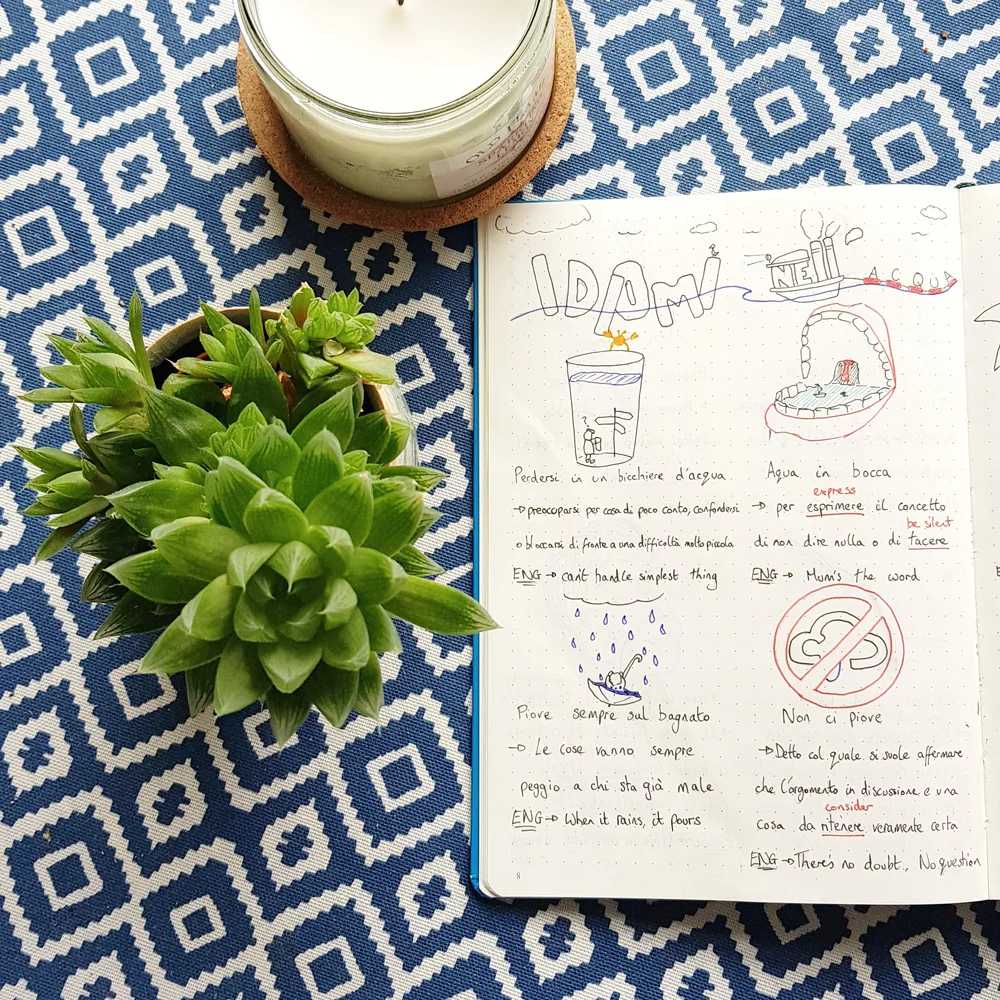 IDIOMI NELL' ACQUA
Perdersi in un bicchiere d'acqua
→ preoccuparsi per cosa di poco conto, confondersi
o bloccarsi di fronte a una difficoltà molto piccola
ENG → can't handle simplest thing
Aqua in bocca
express
→ per esprimere il concetto
be silent
di non dire nulla o di tacere
ENG → Mum's the word
Piove sempre sul bagnato
→ Le cose vanno sempre
peggio a chi sta già male
ENG → When it rains, it pours
Non ci piove
→ Detto col quale si suole affermare
che l'argomento in discussione e una
consider
cosa da ritenere veramente certa
ENG → There's no doubt., No question
8